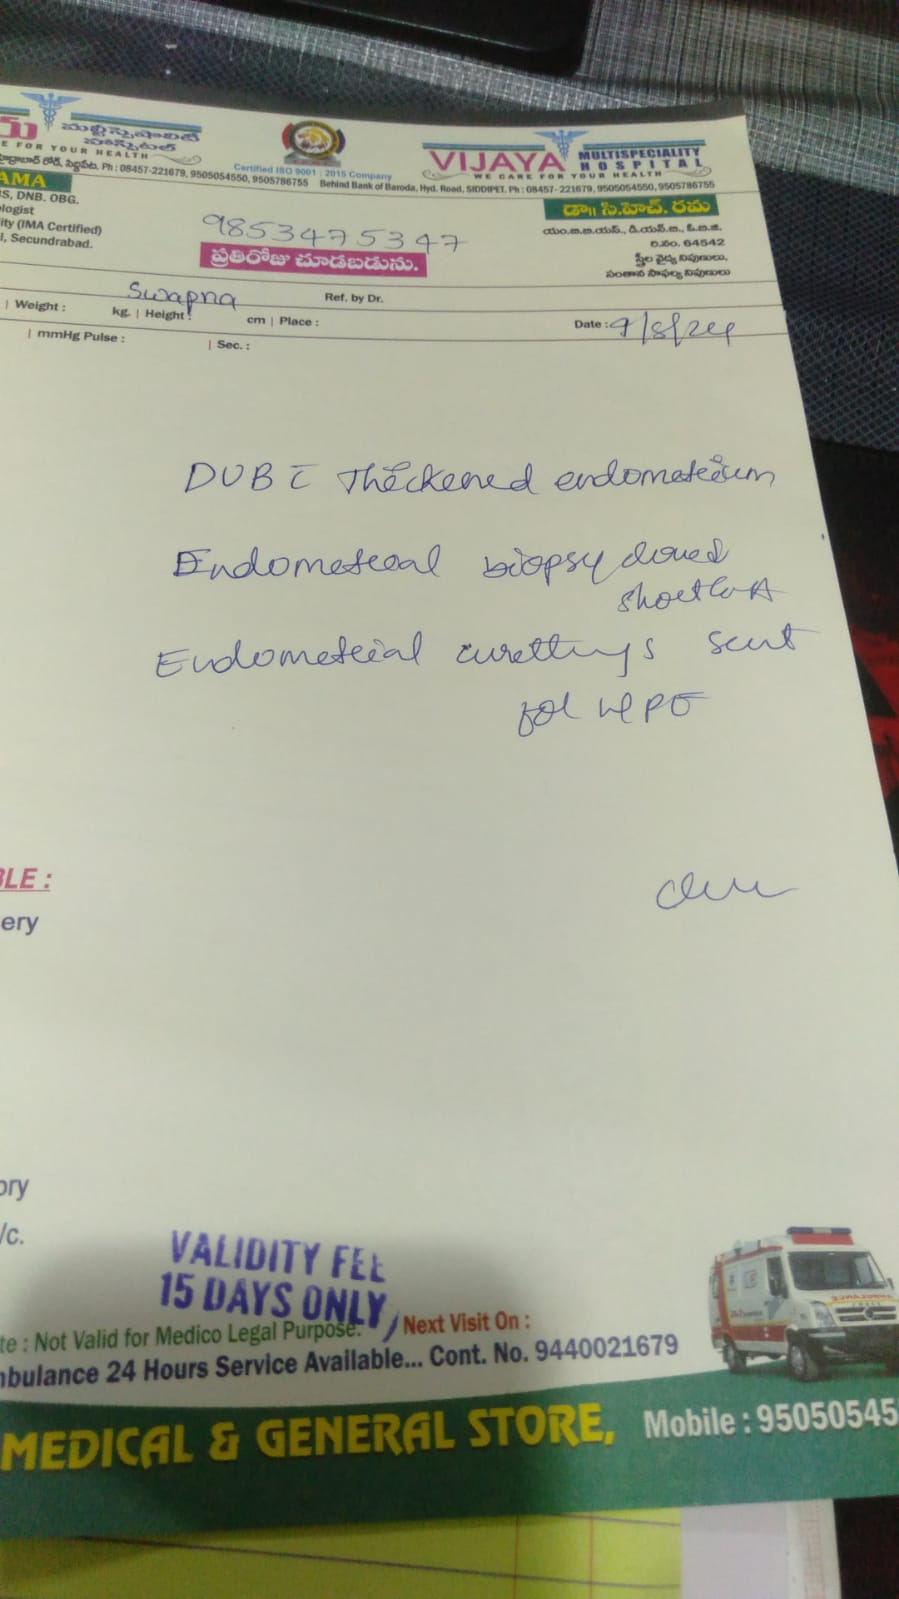 మల్టీస్పెషాలిటీ
హాస్పిటల్
E FOR YOUR HEALTH
హైద్రాబాద్ రోడ్, సిద్దిపేట. Ph : 08457-221679, 9505054550, 9505786755
Certified ISO 9001 : 2015 Company
VIJAYA MULTISPECIALITY HOSPITAL
WE CARE FOR YOUR HEALTH
Behind Bank of Baroda, Hyd. Road, SIDDIPET. Ph : 08457- 221679, 9505054550, 9505786755
AMA
S, DNB. OBG.
ologist
ity (IMA Certified)
l, Secundrabad.
డా॥ సి.హెచ్. రమ
యం.బి.బి.యస్., డి.యన్.బి., ఓ.బి.జి.
రి.నం. 64542
స్త్రీల వైద్య నిపుణులు,
సంతాన సాఫల్య నిపుణులు
9853475347
ప్రతిరోజు చూడబడును.
Swapna
Ref. by Dr.
| Weight : kg. | Height : cm | Place :
Date : 9/8/24
| mmHg Pulse : | Sec. :
DUB c̄ Thickened endometrium
Endometrial biopsy done
Endometrial curettings sent
for HPE
BLE :
ery
ory
/c.
VALIDITY FEE
15 DAYS ONLY
te : Not Valid for Medico Legal Purpose. / Next Visit On :
mbulance 24 Hours Service Available... Cont. No. 9440021679
MEDICAL & GENERAL STORE, Mobile : 95050545